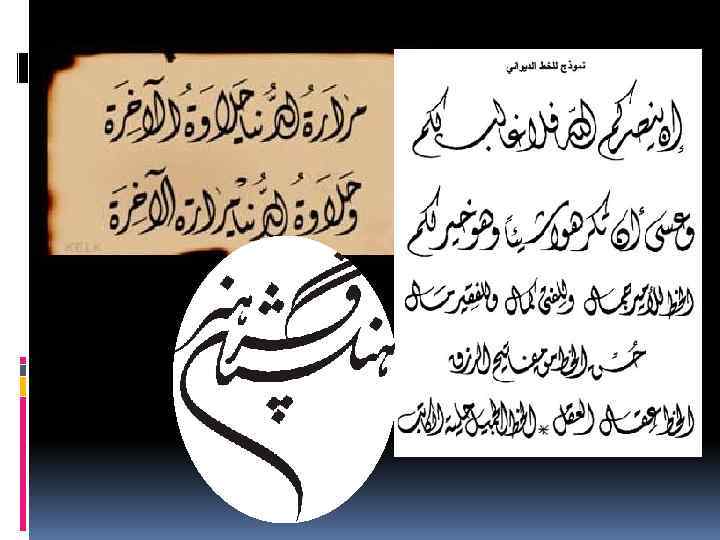 مَرَارَةُ الدُّنيا حَلَاوَةُ الآخِرَة
وَحَلَاوَةُ الدُّنيا مَرَارَةُ الآخِرَة
KELK
نموذج للخط الديواني
إن ينصركم الله فلا غالب لكم
وعسى أن تكرهوا شيئاً وهو خير لكم
الخط للأمير جمال وللغني كمال وللفقير مال
حُسن الخط من مفاتيح الرزق
الخط عقال العقل * الخط الجميل حلية الكاتب
فرهنگستان هنر